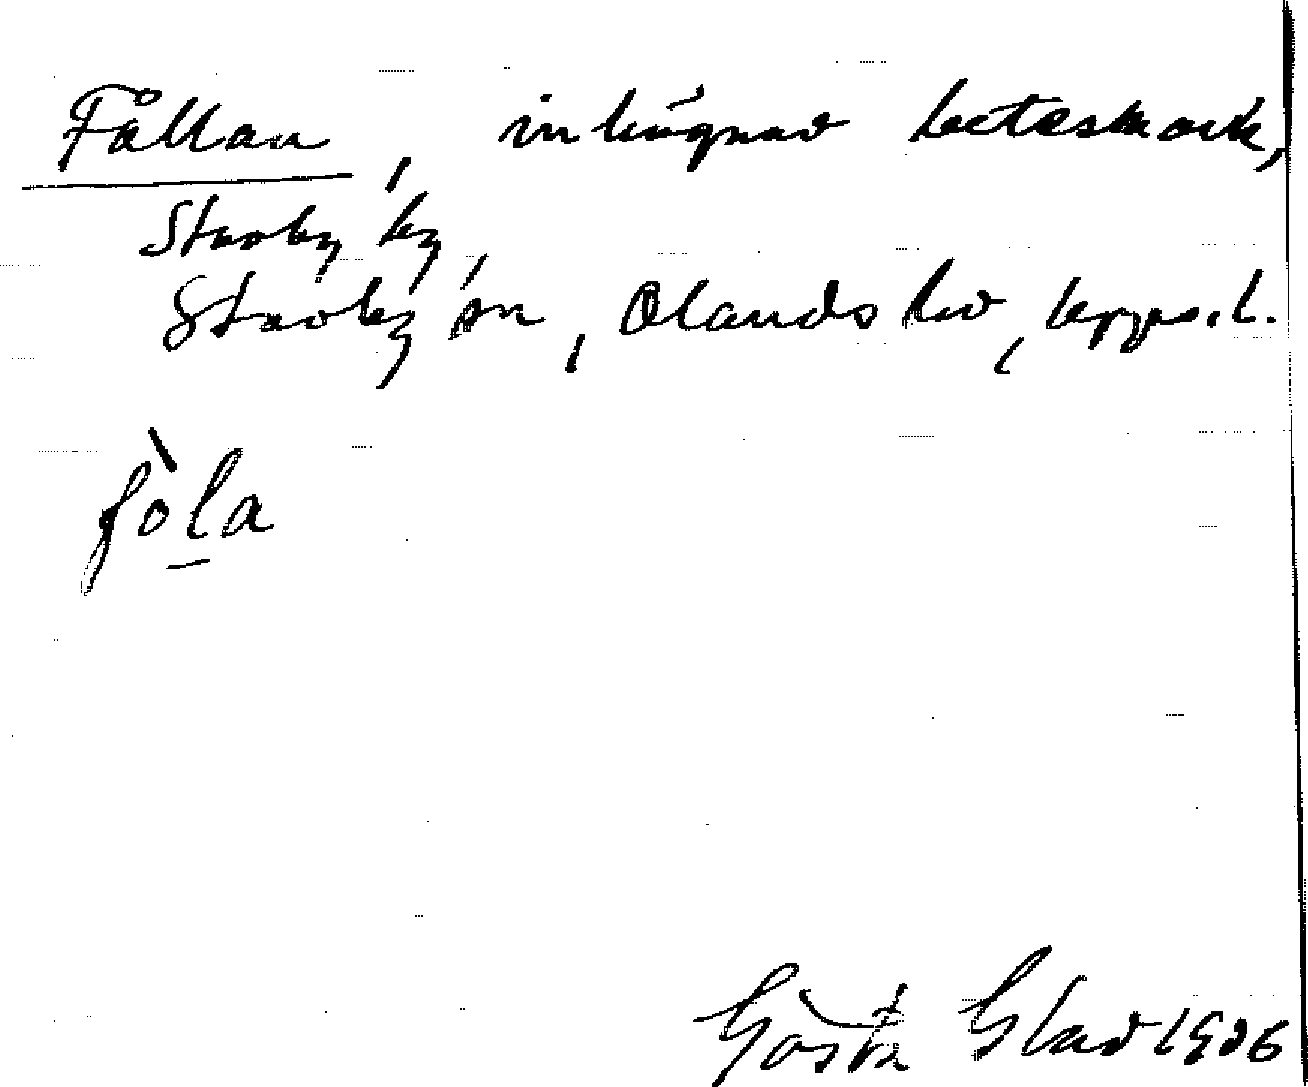 Fållan, inhägnad betesmark,
Stavby by,
Stavby sn, Olands hd, Upps. l.
fòla
Gösta Blad 1936